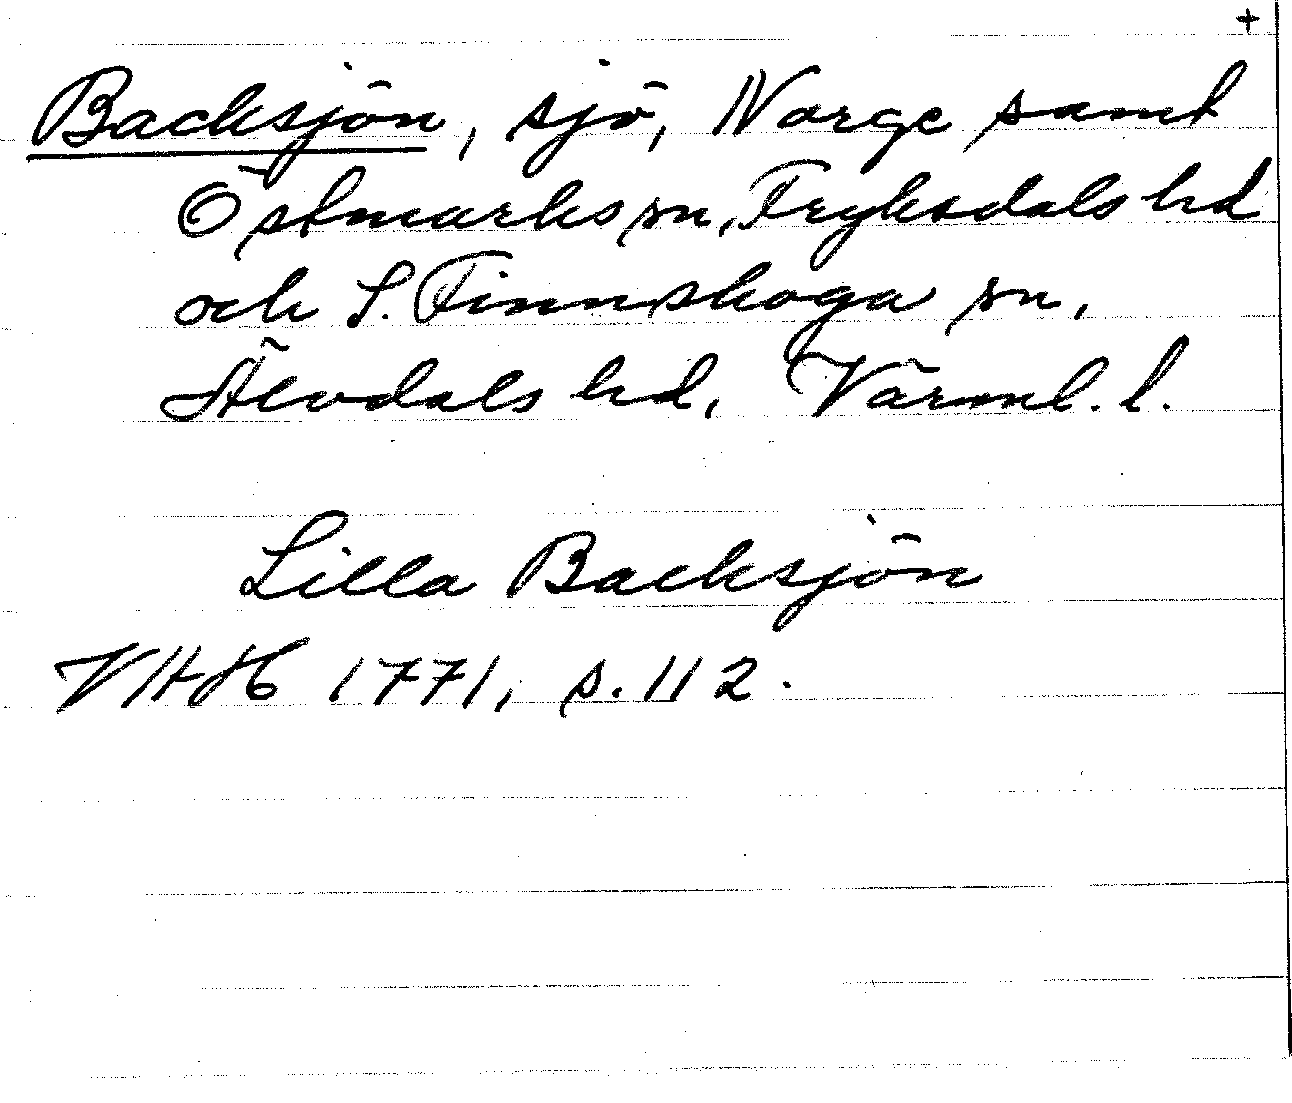 +
Backsjön, sjö, Norge samt
Östmarks sn, Fryksdals hd
och S. Finnskoga sn,
Älvdals hd, Värml. l.
Lilla Backsjön
VHH 1771, s. 112.